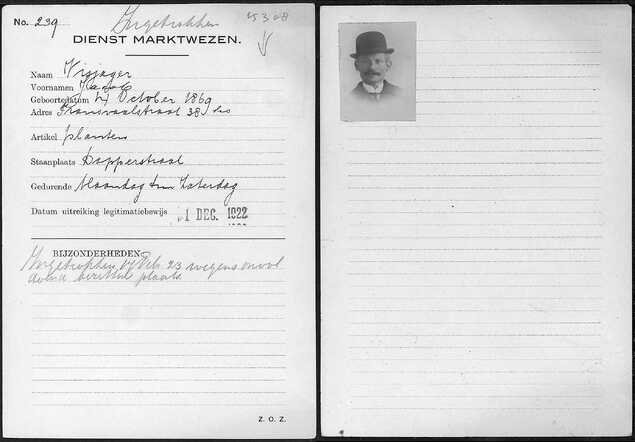 No. 239 Ingetrokken 25308
DIENST MARKTWEZEN.
Naam Visjager
Voornamen Jacob
Geboortedatum 24 October 1869
Adres Transvaalstraat 38
Artikel planten
Staanplaats Dapperstraat
Gedurende Maandag t/m Zaterdag
Datum uitreiking legitimatiebewijs 1 DEC. 1922
BIJZONDERHEDEN
Ingetrokken Feb. 23 wegens onvol
doend bezetten plaats
Z. O. Z.